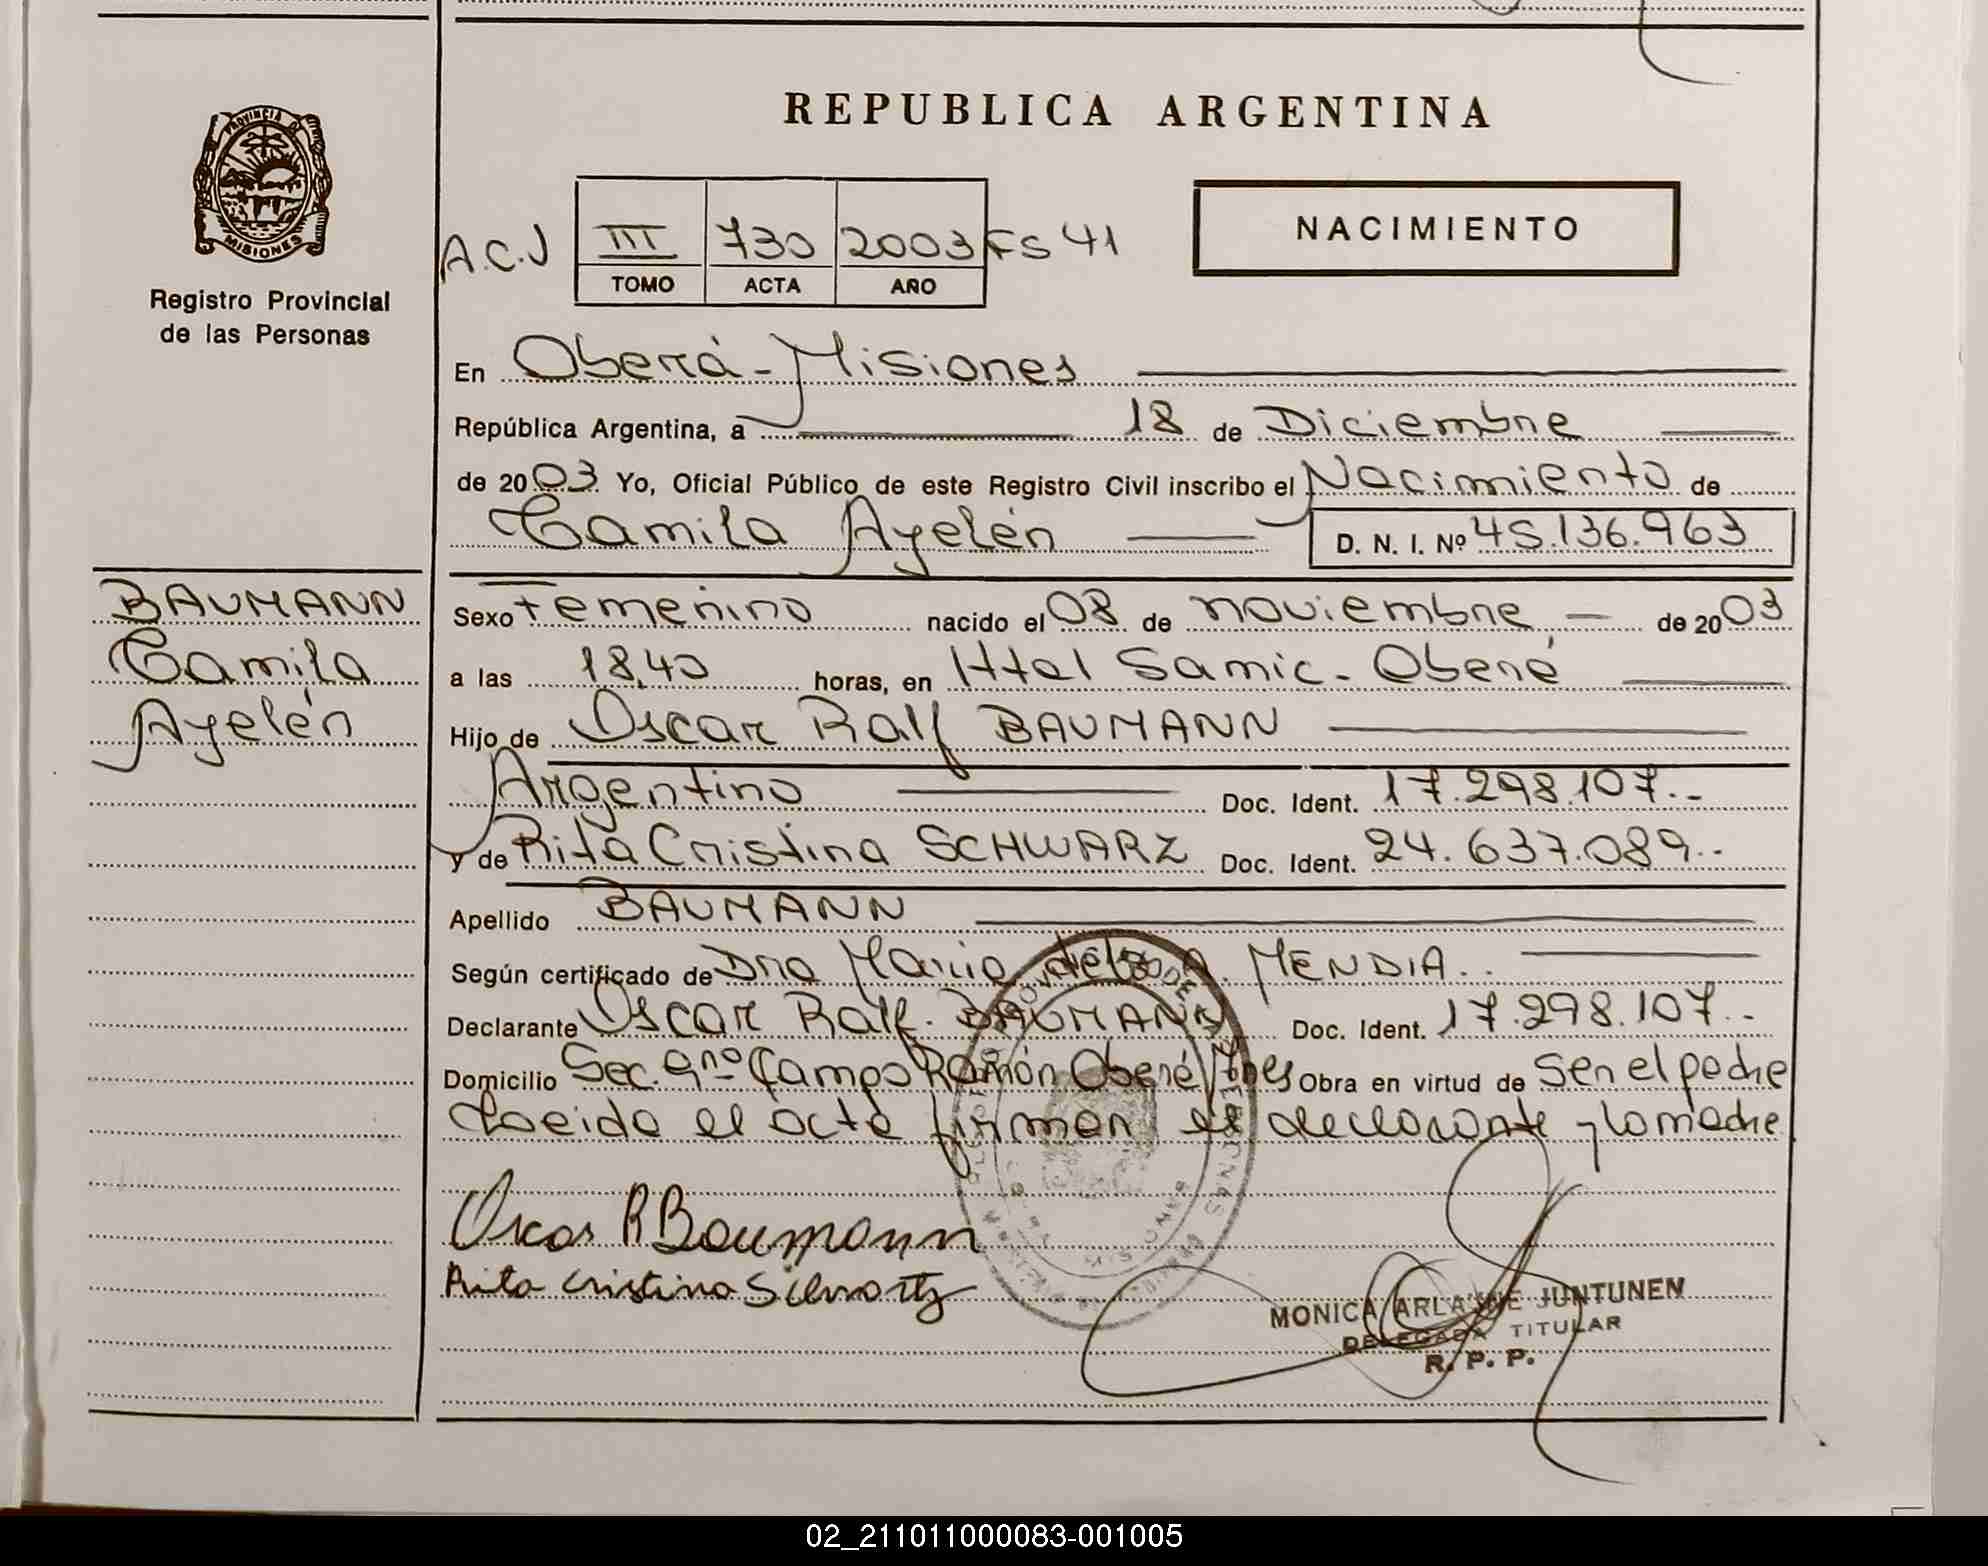 REPUBLICA ARGENTINA
PROVINCIA DE
MISIONES
Registro Provincial
de las Personas
A.C.J III 730 2003 FS 41
TOMO ACTA AÑO
NACIMIENTO
En Oberá - Misiones
República Argentina, a 18 de Diciembre
de 2003 Yo, Oficial Público de este Registro Civil inscribo el Nacimiento de
Camila Ayelén D. N. I. Nº 45.136.963
BAUMANN
Camila
Ayelén
Sexo Femenino nacido el 08 de noviembre de 2003
a las 18,40 horas, en Htal Samic - Oberá
Hijo de Oscar Ralf BAUMANN
Argentino Doc. Ident. 17.298.107.-
y de Rita Cristina SCHWARZ Doc. Ident. 24.637.089.-
Apellido BAUMANN
Según certificado de Dra Maria del A. MENDIA..
Declarante Oscar Ralf. BAUMANN Doc. Ident. 17.298.107.-
Domicilio Sec. 9na Campo Ramón Oberá Mnes Obra en virtud de Ser el padre
Leida el acta firman el declarante y la madre
Oscar R Baumann
Rita Cristina Schwartz
MONICA ARLAINE JUNTUNEN
DELEGADA TITULAR
R. P. P.
02_211011000083-001005